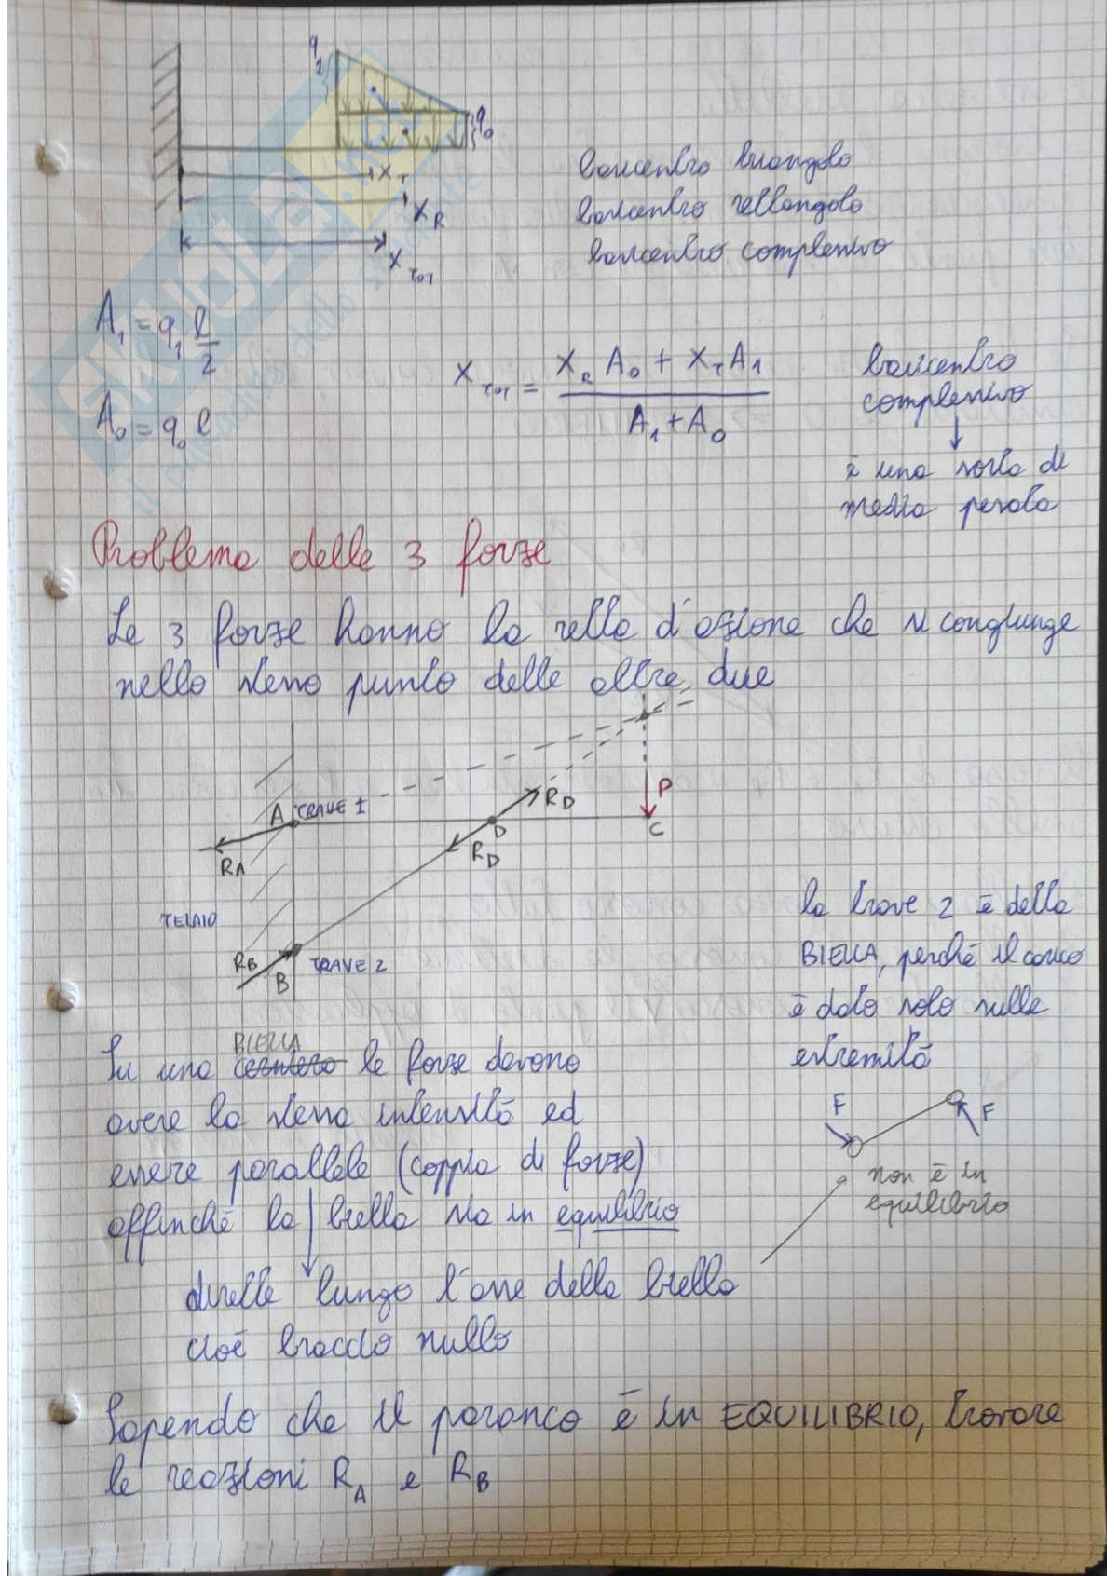 q1
q0
XT
XR
XTOT
baricentro triangolo
baricentro rettangolo
baricentro complessivo
A1 = q1 l/2
A0 = q0 l
XTOT = (XR A0 + XT A1) / (A1 + A0)
baricentro
complessivo
è una sorta di
media pesata
Problema delle 3 forze
Le 3 forze hanno la retta d'azione che si congiunge
nello stesso punto delle altre due
A TRAVE 1
RA
RD
D
RD
P
C
TELAIO
RB
B
TRAVE 2
la trave 2 è detta
BIELLA, perché il carico
è dato solo sulle
estremità
BIELLA
Su una le forze devono
avere la stessa intensità ed
essere parallele (coppia di forze)
affinché la biella sia in equilibrio
F
F
non è in
equilibrio
dirette lungo l'asse della biella
cioè braccio nullo
Sapendo che il paranco è in EQUILIBRIO, trovare
le reazioni RA e RB
SKUOLA